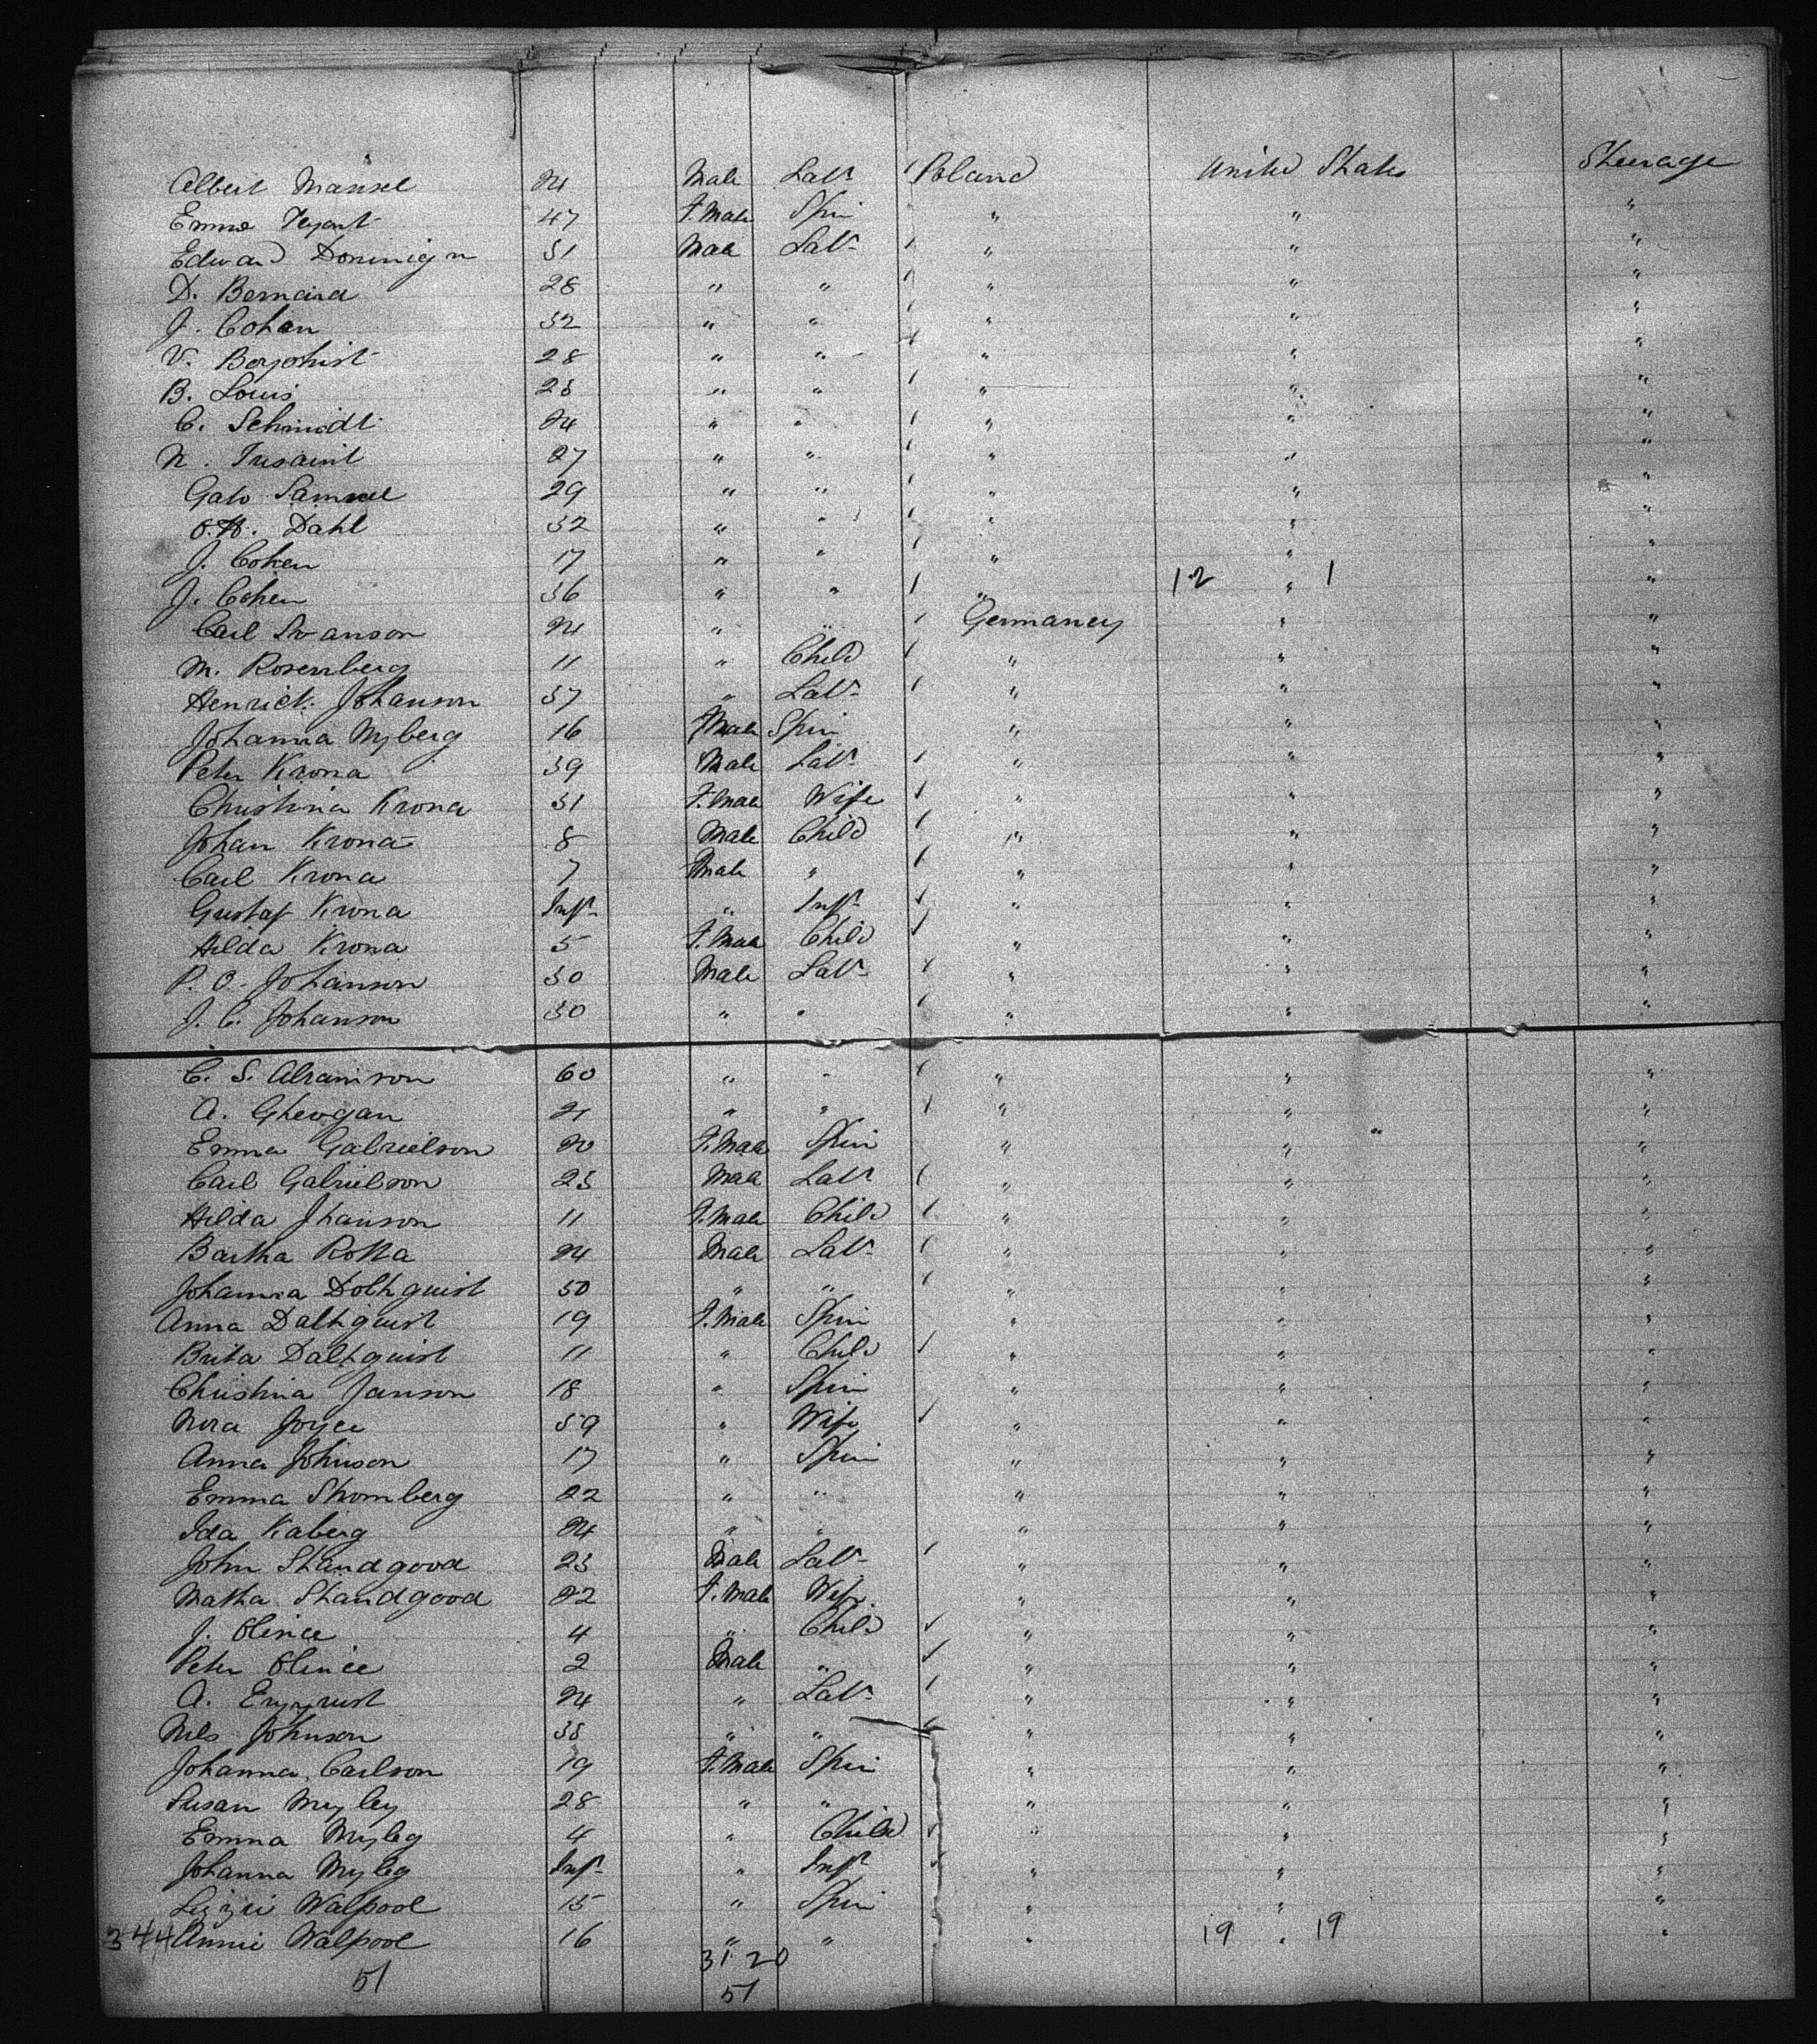 Albert Mansel 24 Male Labr Poland United States Steerage
Emma 47 F.Male Spin " " "
Edward Dominign 31 Male Labr " " "
D. Bernard 28 " " " " "
J. Cohan 32 " " " " "
V. 28 " " " " "
B. Louis 23 " " " " "
C. Schmidt 24 " " " " "
N. Trisaint 27 " " " " "
Gato Samuel 29 " " " " "
O.H. Dahl 32 " " " " "
J. Cohen 17 " " " " "
J. Cohen 36 " " " 12 " 1 "
Carl Swanson 24 " " Germaney " "
M. Rosenberg 11 " Child " " "
Henrick Johanson 37 " Labr " " "
Johanna Nyberg 16 F.Male Spin " " "
Peter Krona 39 Male Labr " " "
Christina Krona 31 F.Male Wife " " "
Johan Krona 8 Male Child " " "
Carl Krona 7 Male " " " "
Gustaf Krona Inft " Inft " " "
Hilda Krona 5 F.Male Child " " "
P. O. Johanson 30 Male Labr " " "
J. C. Johanson 30 " " " " "
C. S. Abramson 60 " " " " "
A. Gheogan 21 " " " " "
Emma Gabrielson 20 F.Male Spin " " "
Carl Gabrielson 23 Male Labr " " "
Hilda Jhanson 11 F.Male Child " " "
Bartha Rotta 24 Male Labr " " "
Johanna Dolhquist 50 " " " " "
Anna Dalhquist 19 F.Male Spin " " "
Brita Dalhquist 11 " Child " " "
Christina Janson 18 " Spin " " "
Nora Joyce 59 " Wife " " "
Anna Johnson 17 " Spin " " "
Emma Stromberg 22 " " " " "
Ida Kaberg 24 " " " " "
John Strandgood 23 Male Labr " " "
Matha Strandgood 22 F.Male Wife " " "
J. Olince 4 " Child " " "
Peter Olince 2 Male " " " "
A. 24 " Labr " " "
Nels Johnson 38 " " " " "
Johanna Carlson 19 F.Male Spin " " "
Susan Myley 28 " " " " "
Emma Myleg 4 " Child " " "
Johanna Myleg Inft " Inft " " "
Lizzie Walpool 15 " Spin " " "
344 Annie Walpool 16 " " " 19 " 19 "
51 31 20
51